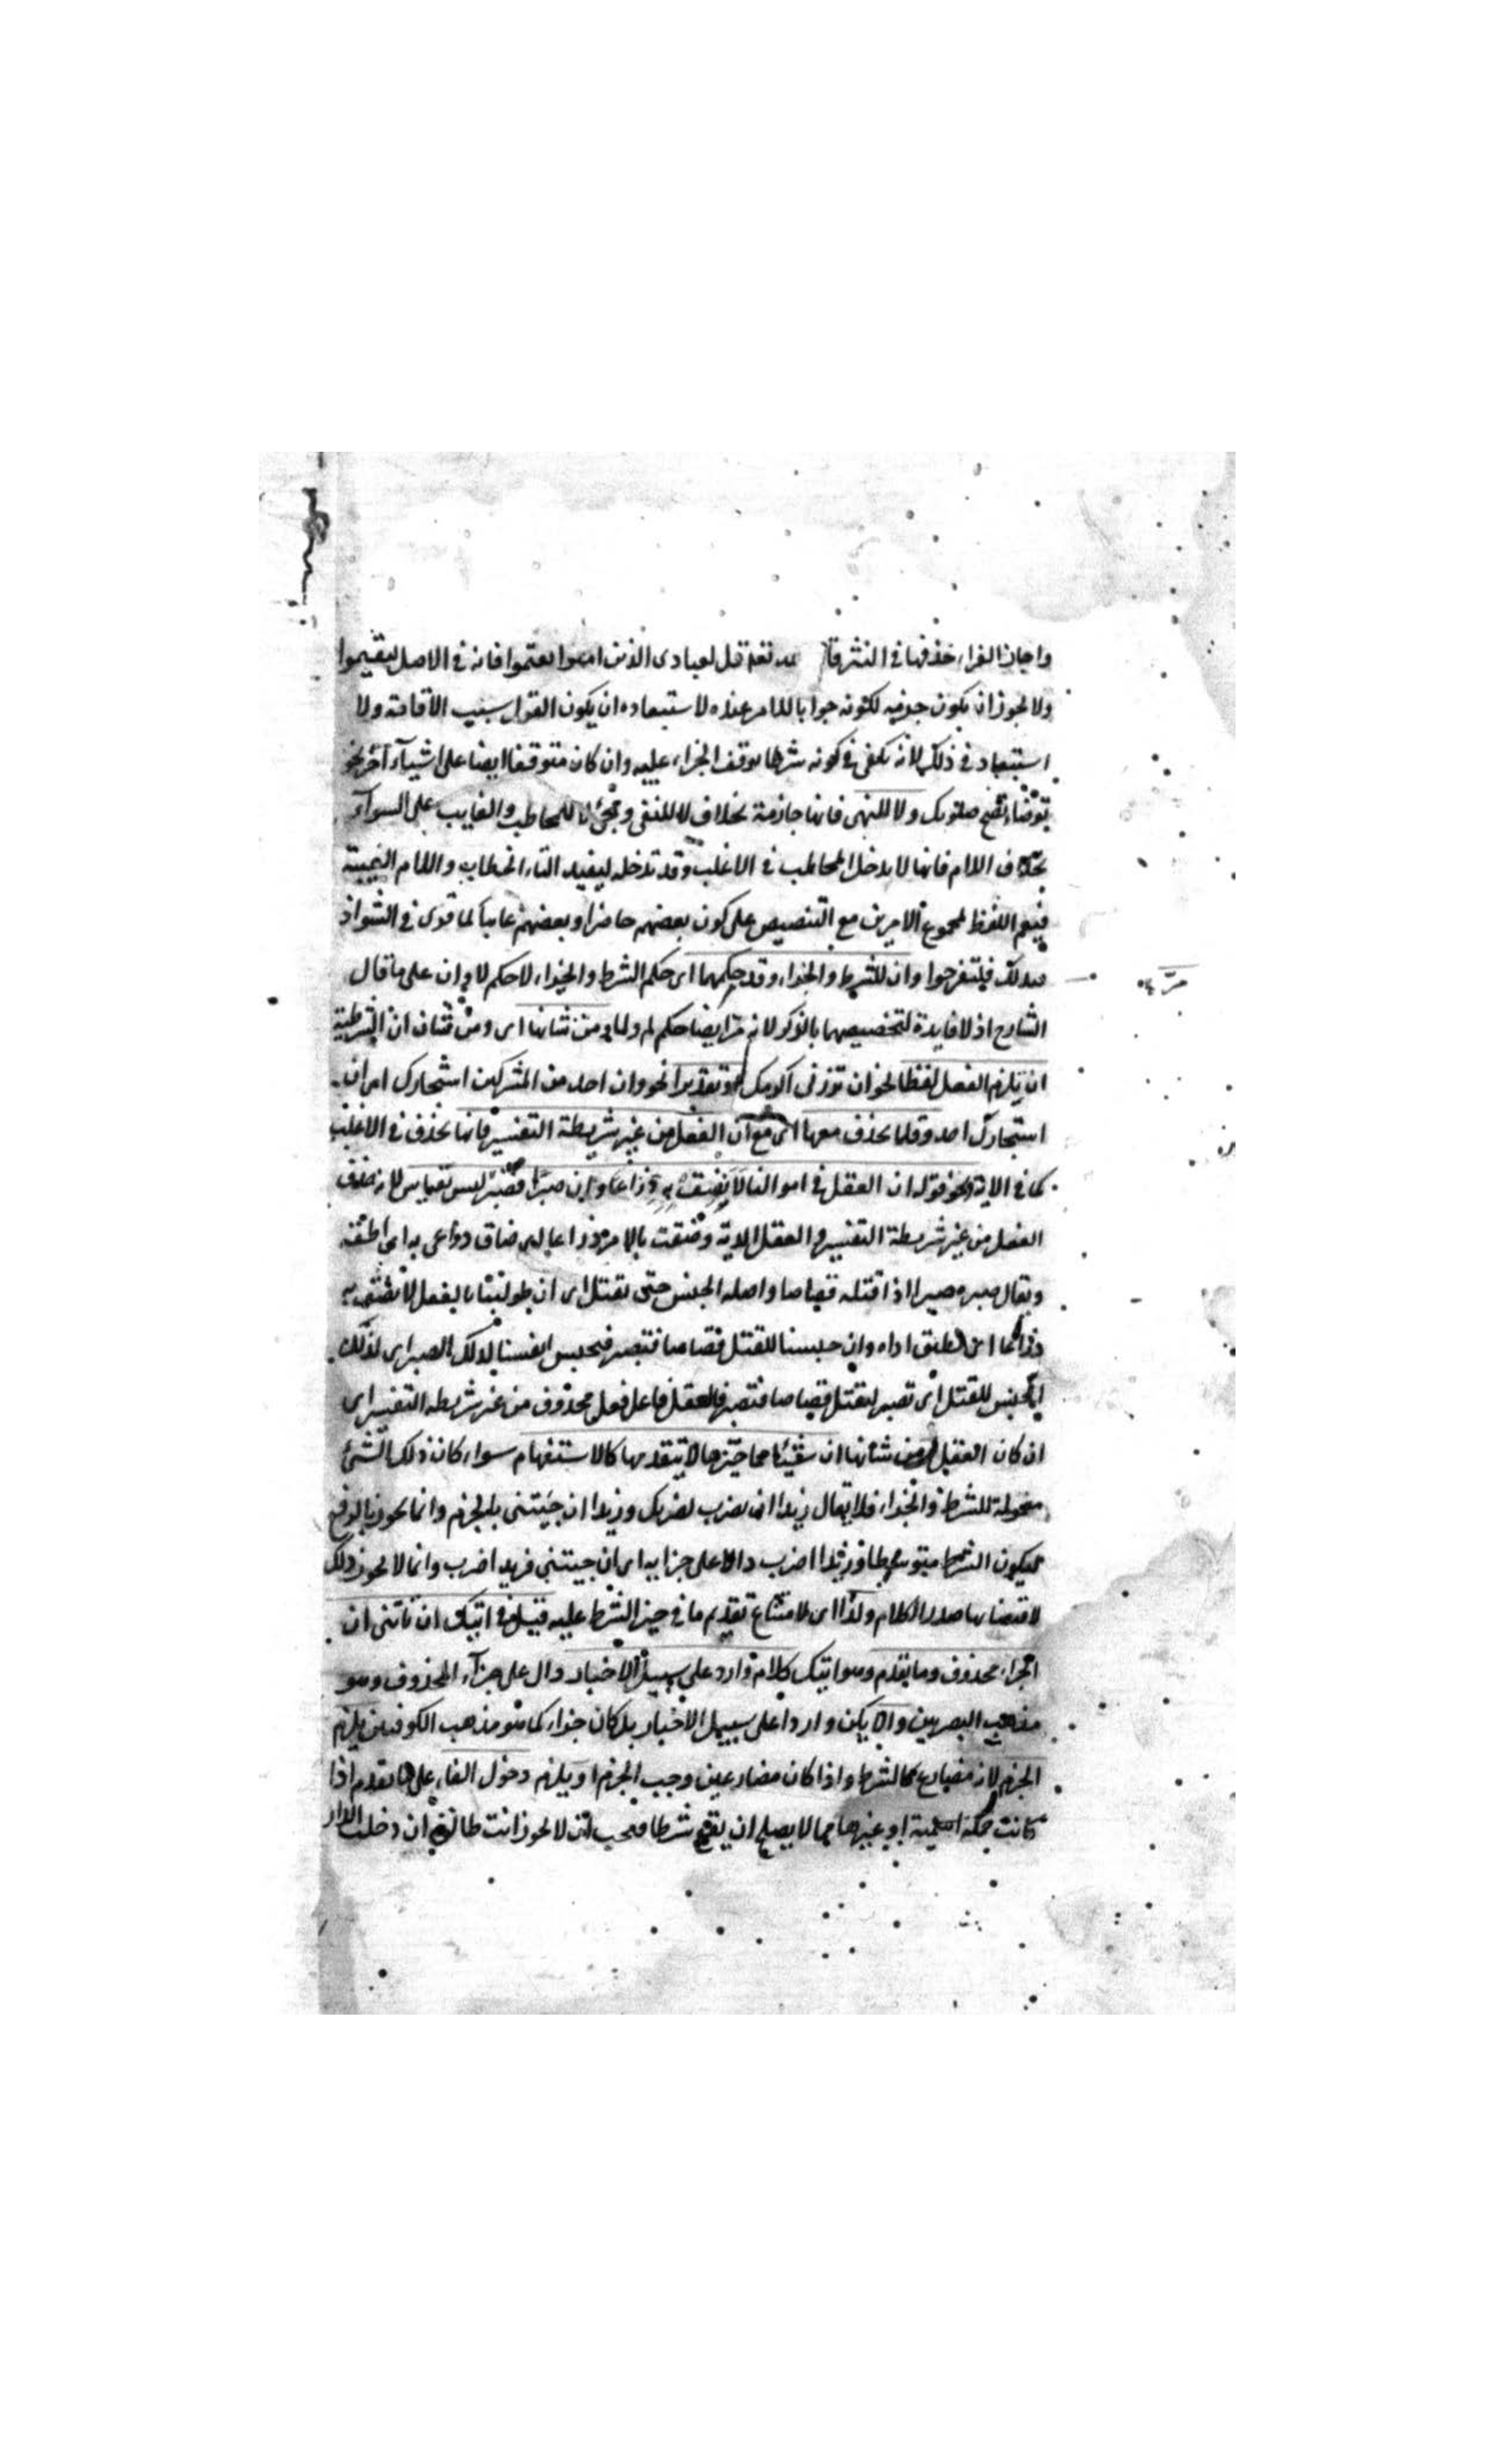 واجاز الفراء حذفها في النثر قال الله تعالى قل لعبادى الذين امنوا يقيموا فانه في الاصل ليقيموا
ولا يجوز ان يكون جزمه لكونه جوابا للامر عنده لاستبعاده ان يكون القول سبب الاقامة ولا
استبعاد في ذلك لانه يكفى في كونه شرطا توقف الجزاء عليه وان كان متوقفا ايضا على اشياء اخر نحو
توضاء تصح صلوتك ولا للنهى فانها جازمة بخلاف لا للنفى وتجئ للمخاطب والغايب على السواء
بخلاف اللام فانها لا يدخل المخاطب في الاغلب وقد تدخله ليفيد التاء الخطاب واللام الغيبة
فيعم اللفظ لمجموع الامرين مع التنصيص على كون بعضهم حاضرا وبعضهم غايبا كما قرئ في الشواذ
فبذلك فلتفرحوا وان للشرط والجزاء وقد حكمهما اى حكم الشرط والجزاء لا حكم لا وان على ما قال
الشارح اذ لا فايدة لتخصيصهما بالذكر لانه مر ايضا حكم لم ولما ومن شانها اى ومن شان ان الشرطية
ان يلزم الفعل لفظا نحو ان تزرنى اكرمك او تقديرا نحو وان احد من المشركين استجارك اى ان
استجارك احد وقلما يحذف معها اى مع ان الفعل من غير شريطة التفسير فانها يحذف في الاغلب
كما في الاية ونحو قوله ان العقل في اموالنا لا نضق به ذراعا وان صبرا فنصبر ليس بقياس لانه حذف
الفعل من غير شريطة التفسير والعقل الدية وضقت بالامر ذراعا اى ضاق ذراعى به اى لم اطقه
ويقال صبره صبرا اذا قتله قصاصا واصله الحبس حتى يقتل اى ان طولبنا بالعقل لا نضق به
ذراعا اى نطيق اداه وان حبسنا للقتل قصاصا فنصبر فنحبس انفسنا لذلك الصبر اى لذلك
الحبس للقتل اى نصبر لنقتل قصاصا فنصبر فالعقل فاعل فعل محذوف من غير شريطة التفسير اى
ان كان العقل ومن شأنها ان شيئا مما حيزها لا يتقدمها كالاستفهام سواء كان ذلك الشئ
معمولة للشرط والجزاء فلا يقال زيدا ان تضرب يضربك وزيدا ان جيتنى بالجزم وانما يجوز بالرفع
ليكون الشرط متوسطا وزيدا اضرب دالا على جزايه اى ان جيتنى فزيدا اضرب وانما لا يجوز ذلك
لاقتضائها صدر الكلام ولذا اى لامتناع تقديم ما في حيز الشرط عليه قيل في اتيك ان تاتنى ان
الجزاء محذوف وما تقدم وهو اتيك كلام وارد على سبيل الاخبار دال على جزاء المحذوف وهو
مذهب البصريين والا يكن واردا على سبيل الاخبار بل كان جزاء كما هو مذهب الكوفيين يلزم
الجزم لانه مضارع كالشرط واذا كان مضارعين وجب الجزم او يلزم دخول الفاء على ما تقدم اذا
كانت جملة اسمية او غيرها مما لا يصلح ان يقع شرطا فيجب ان لا يجوز انت طالق ان دخلت الدار